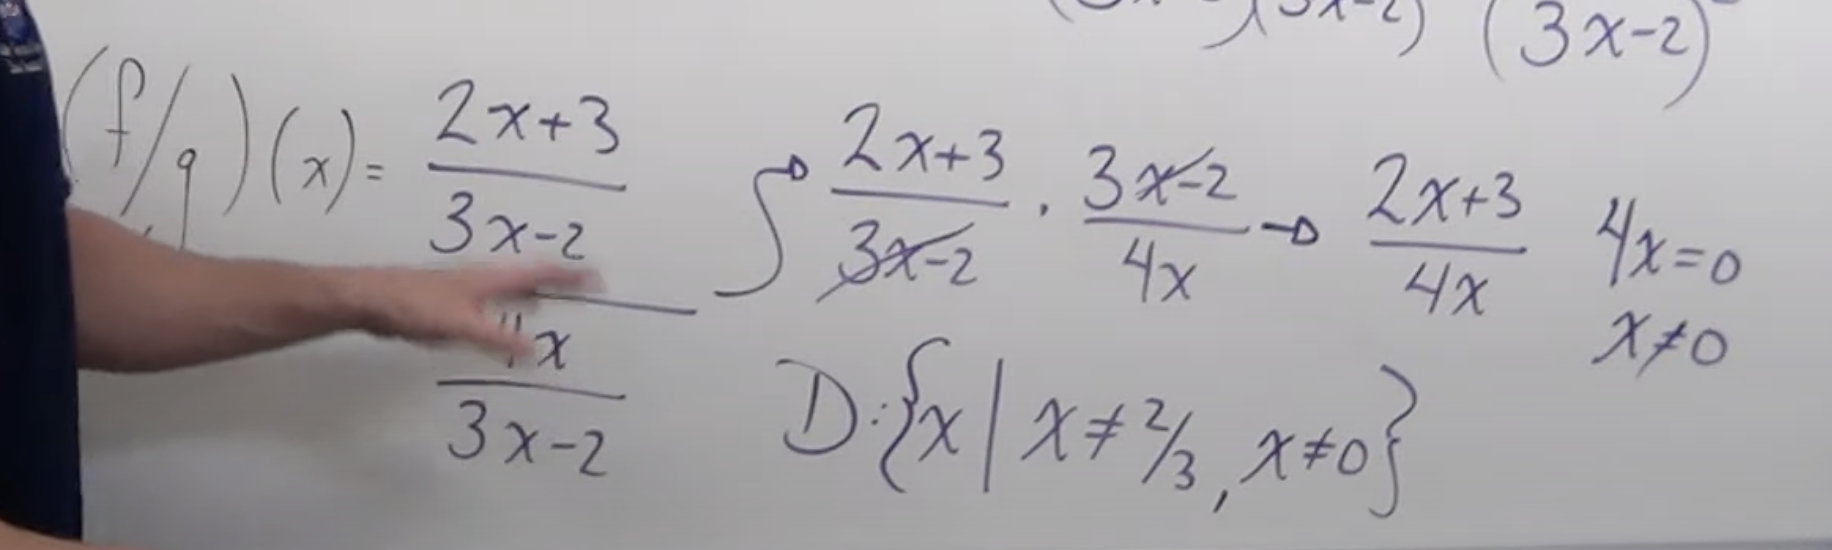 (3x-2) (3x-2)
(f/g)(x) = (2x+3)/(3x-2) / (4x)/(3x-2) → (2x+3)/(3x-2) · (3x-2)/(4x) → (2x+3)/(4x) 4x=0
x≠0
D:{x | x≠2/3, x≠0}